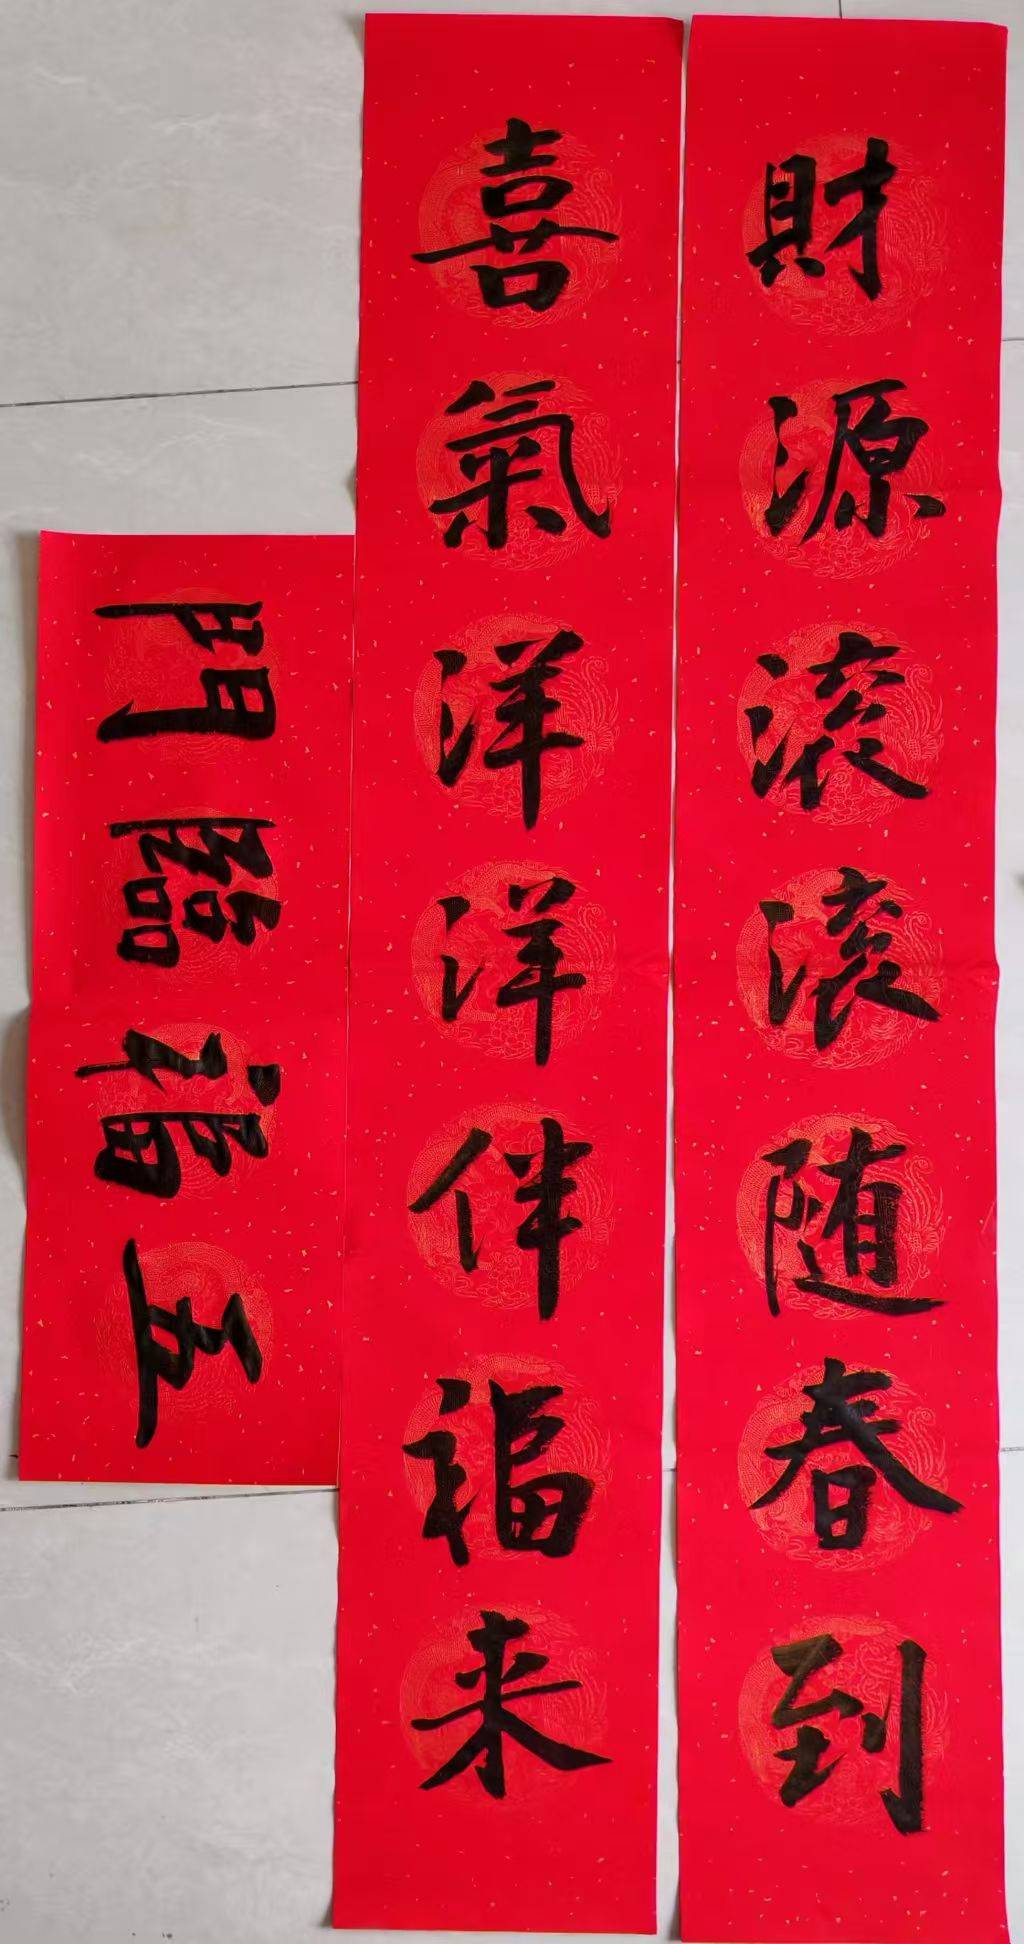 財源滚滚随春到
喜氣洋洋伴福来
五福臨門